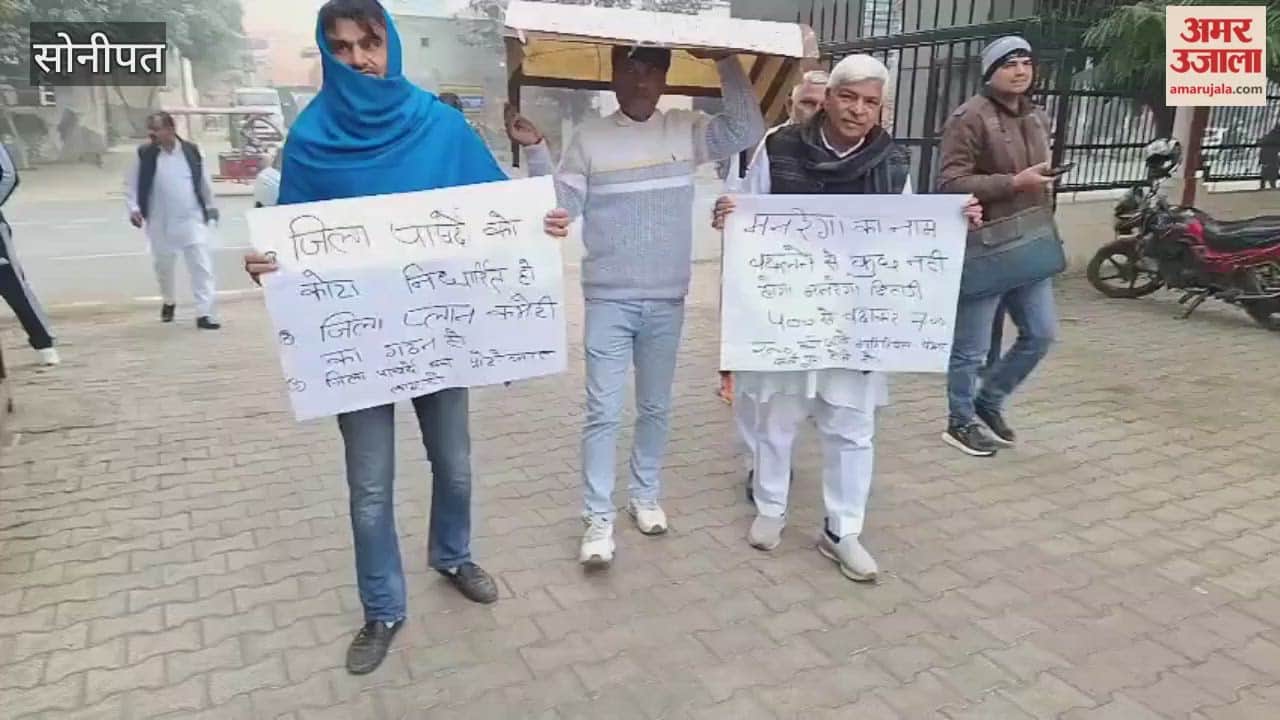 सोनीपत
अमर
उजाला
amarujala.com
① जिला पार्षदों को
कोटा निर्धारित हो
② जिला प्लान कमेटी
का गठन हो
③ जिला पार्षदों का
मनरेगा का नाम
बदलने से कुछ नही
होगा मनरेगा दिहाड़ी
५०० से बढाकर